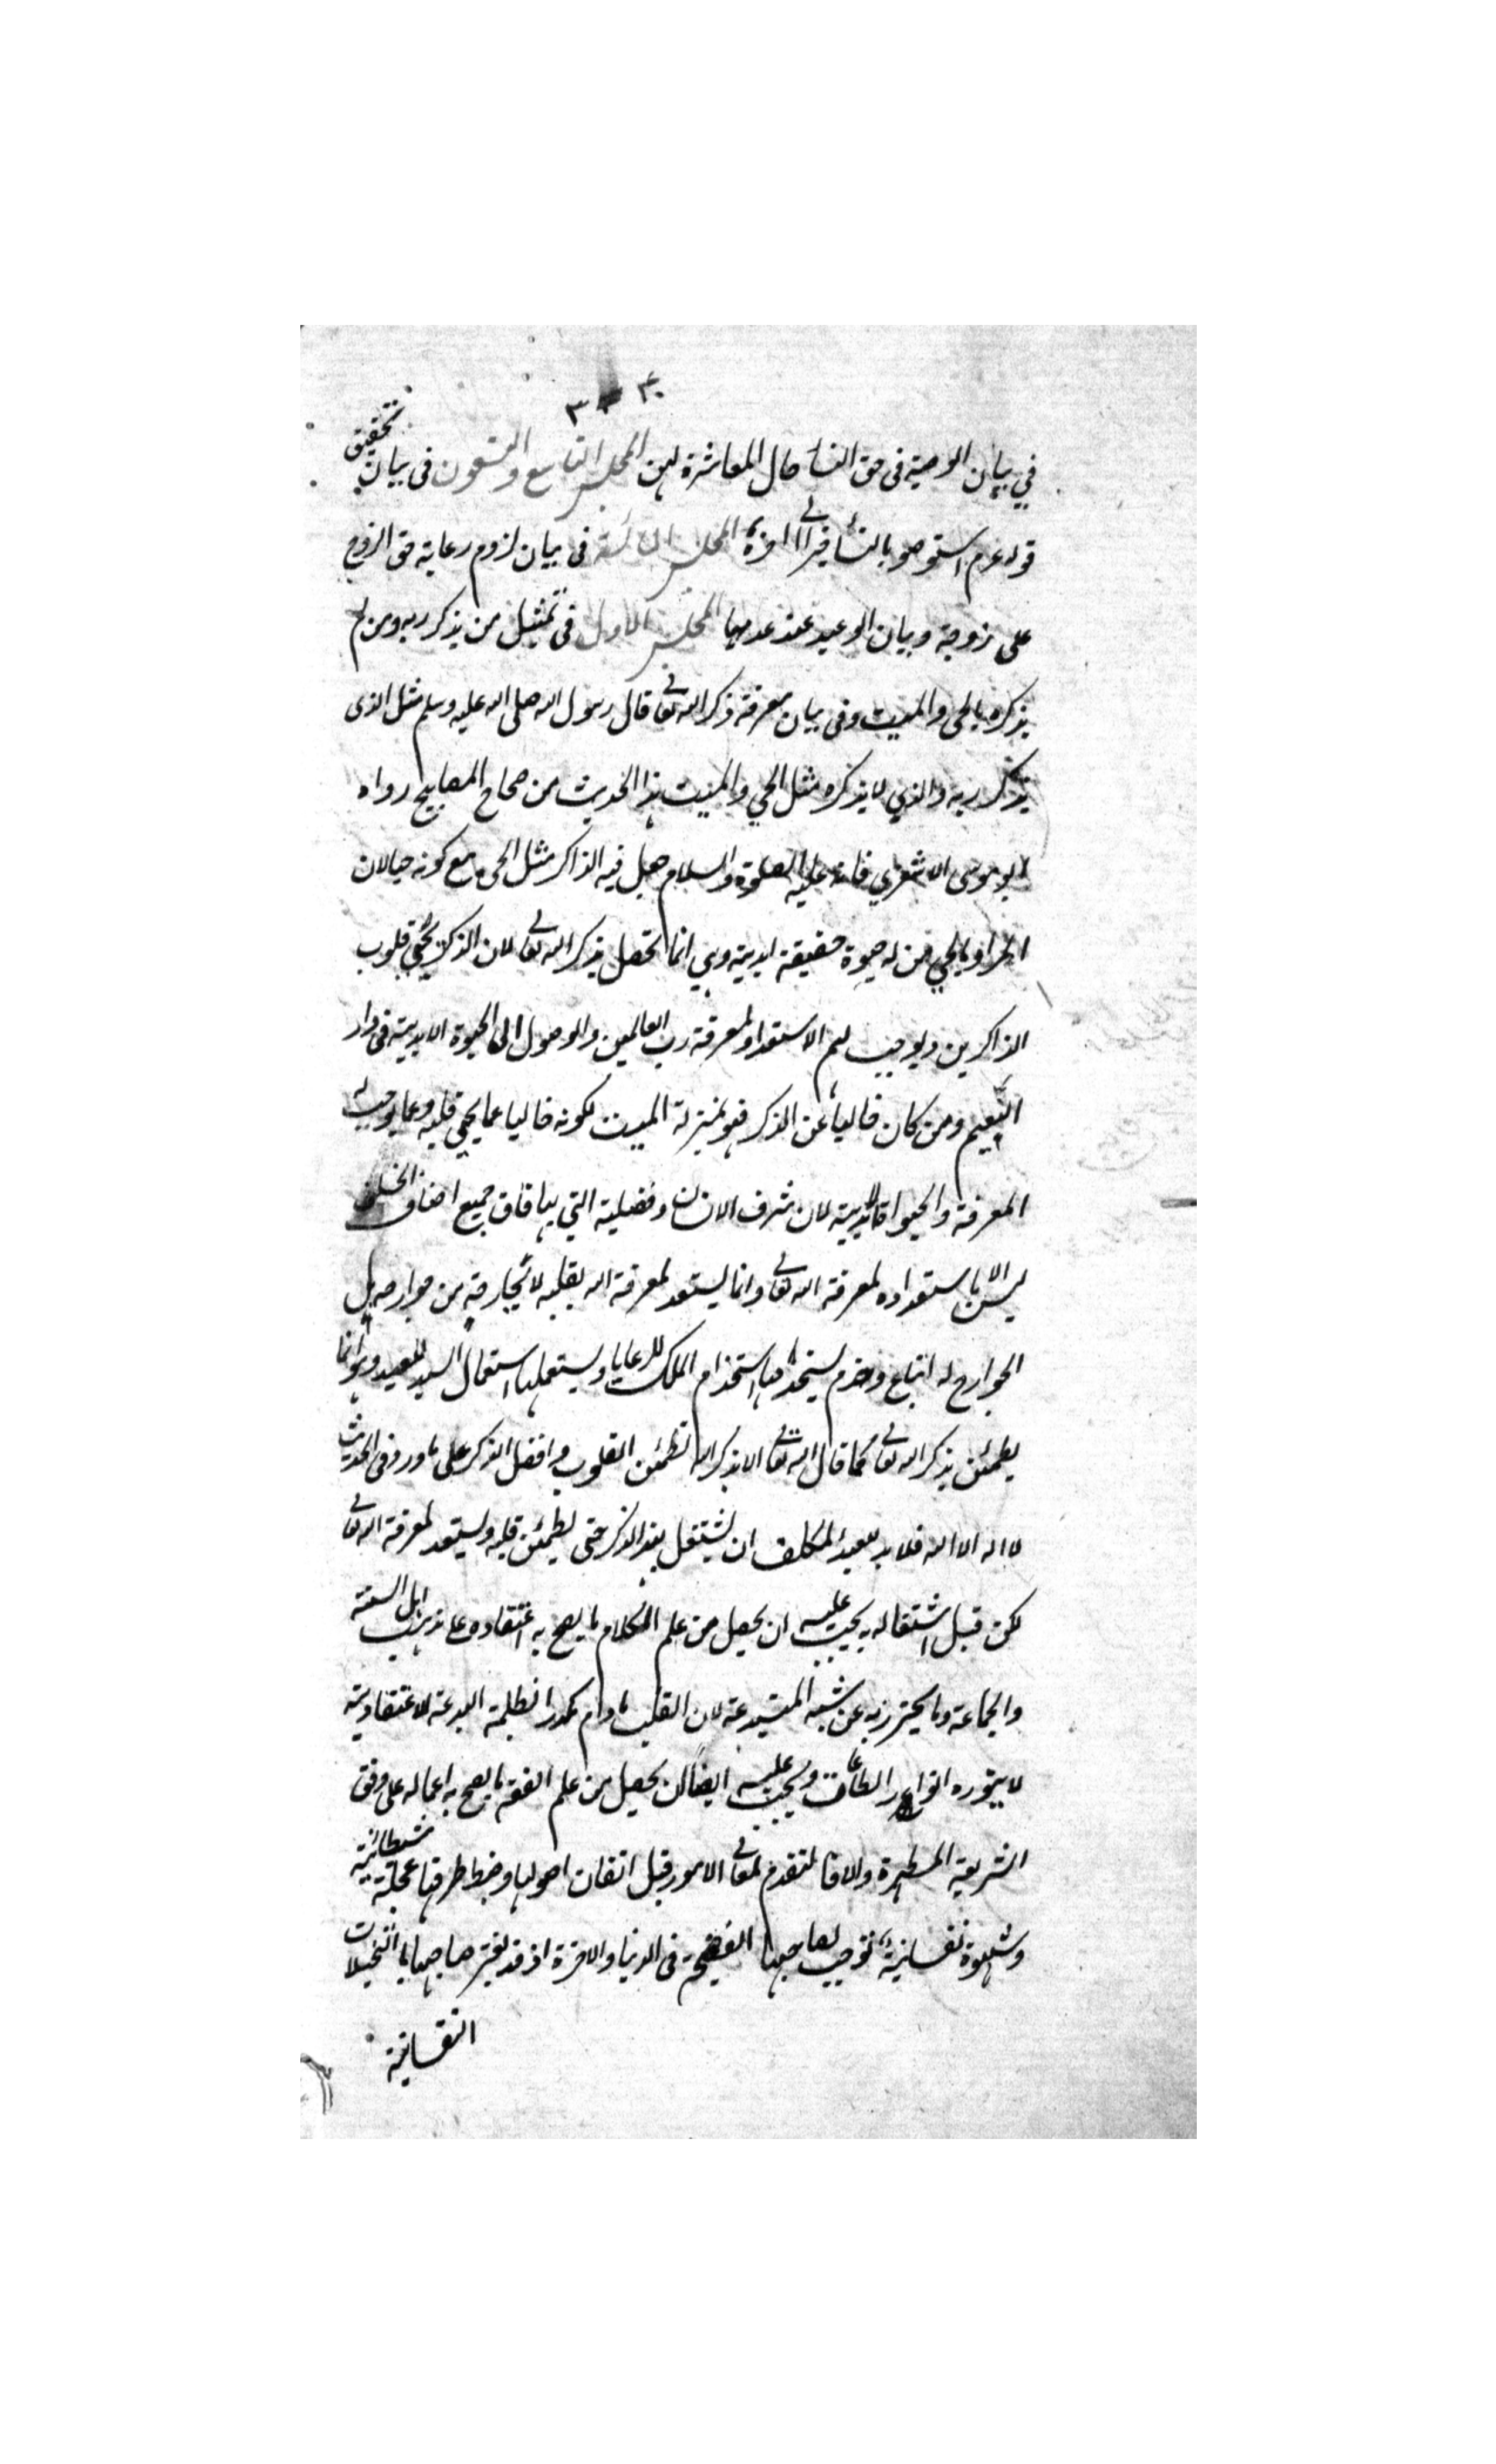 ٣٠ ٣
في بيان الوصية في حق النساء حال المعاشرة لهن المجلس التاسع والتسعون في بيان تحقيق
قوله عم استوصو بالنساء خيرا الى اخره المجلس المائة في بيان لزوم رعاية حق الزوج
على زوجة وبيان الوعيد عند عدمها المجلس الاول في تمثيل من يذكر ربه ومن لم
يذكره بالحى والميت وفى بيان معرفة ذكر الله تعا قال رسول الله صلى الله عليه وسلم مثل الذى
يذكر ربه والذي لا يذكره مثل الحي والميت هذا الحديث من صحاح المصابيح رواه
ابو موسى الاشعري فانه عليه الصلوة والسلام جعل فيه الذاكر مثل الحى مع كونه حيا لان
المراد بالحي من له حيوة حقيقة ابدية وهي انما تحصل بذكر الله تعالى لان الذكر يحيي قلوب
الذاكرين ويوجب لهم الاستعداد لمعرفة رب العالمين والوصول الى الحيوة الابدية في دار
النعيم ومن كان خاليا عن الذكر فهو بمنزلة الميت لكونه خاليا عما يحيي قلبه وعما يوجب له
المعرفة والحيواة الابدية لان شرف الانسان وفضيلته التي بها فاق جميع اصناف الخلق
ليس الا باستعداده لمعرفة الله تعالى وانما يستعد لمعرفة الله بقلبه لا بجارحة من جوارحه بل
الجوارح له اتباع وخدم يستخدمها استخدام الملك للرعايا ويستعملها استعمال السيد للعبيد وهو انما
يطمئن بذكر الله تعالى كما قال الله تعالى الا بذكر الله تطمئن القلوب وافضل الذكر على ما ورد في الحديث
لا اله الا الله فلا بد للعبد المكلف ان يشتغل بهذا الذكر حتى يطمئن قلبه ويستعد لمعرفة الله تعالى
لكن قبل اشتغاله به يجب عليه ان يحصل من علم الكلام ما يصح به اعتقاده على مذهب اهل السنة
والجماعة وما يحترز به عن شبه المبتدعة لان القلب ما دام مكدرا بظلمة البدعة الاعتقادية
لا ينوره انوار الطاعات ويجب عليه ايضا ان يحصل من علم الفقه ما يصح به اعماله على وفق
الشريعة المطهرة والا فالتقدم لمعالى الامور قبل اتقان اصولها وضبط طرقها عجلة شيطانية
وشهوة نفسانية توجب لصاحبها الفضيحة في الدنيا والاخرة اذ قد يغتر صاحبها بالتخيلات
النفسانية